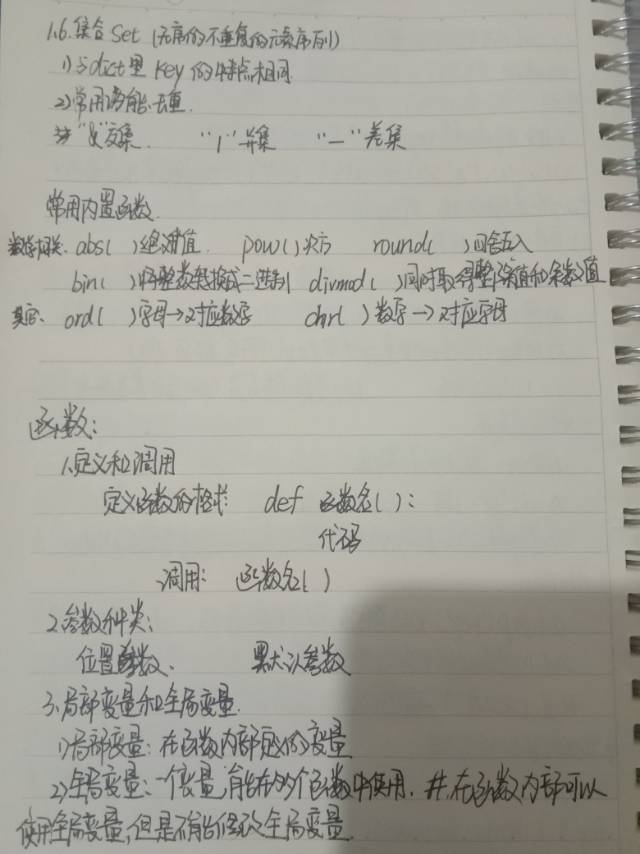 1.6.集合 Set (无序的不重复的元素序列)
1)与dict里 key 的特点相同
2)常用功能:去重
"&"交集 "|"并集 "—"差集
常用内置函数
数学相关: abs( )绝对值 pow( )次方 round( )四舍五入
bin( )将整数转换成二进制 divmod( )同时取得整除值和余数值
其它: ord( )字母→对应数字 chr( )数字→对应字母
函数:
1.定义和调用
定义函数的格式: def 函数名( ):
代码
调用: 函数名( )
2.参数种类:
位置参数、 默认参数
3.局部变量和全局变量
1)局部变量: 在函数内部定义的变量
2)全局变量: 一个变量,能在多个函数中使用. #.在函数内部可以
使用全局变量,但是不能修改全局变量